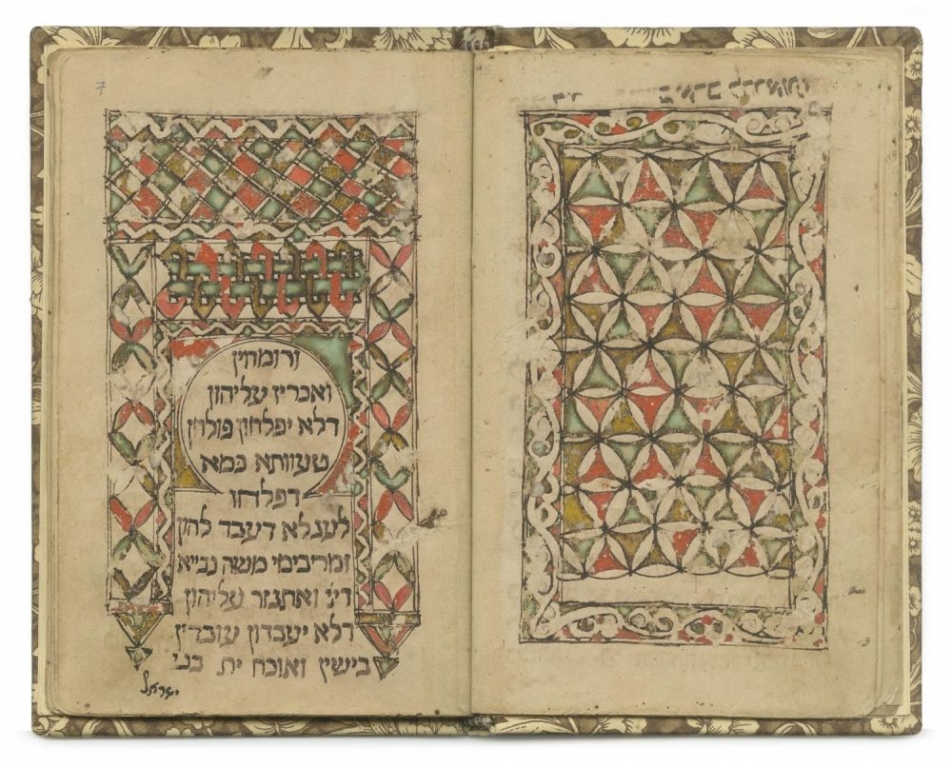 7
ורומחין
ואכריז עליהון
דלא יפלחון פולחן
טעוותא כמא
דפלחו
לעגלא דעבד להון
זמרי בימי משה נבייא
ואתגזר עליהון
דלא יעבדון עובדין
בישין ואוכח ית בני
ישראל